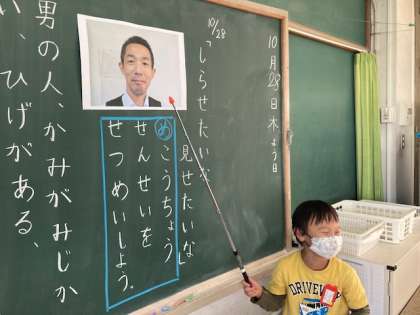 10月28日木よう日
10/28
「しらせたいな、見せたいな」
めこうちょう
せんせいを
せつめいしよう。
男の人、かみがみじか
い、ひげがある、
DRIVE